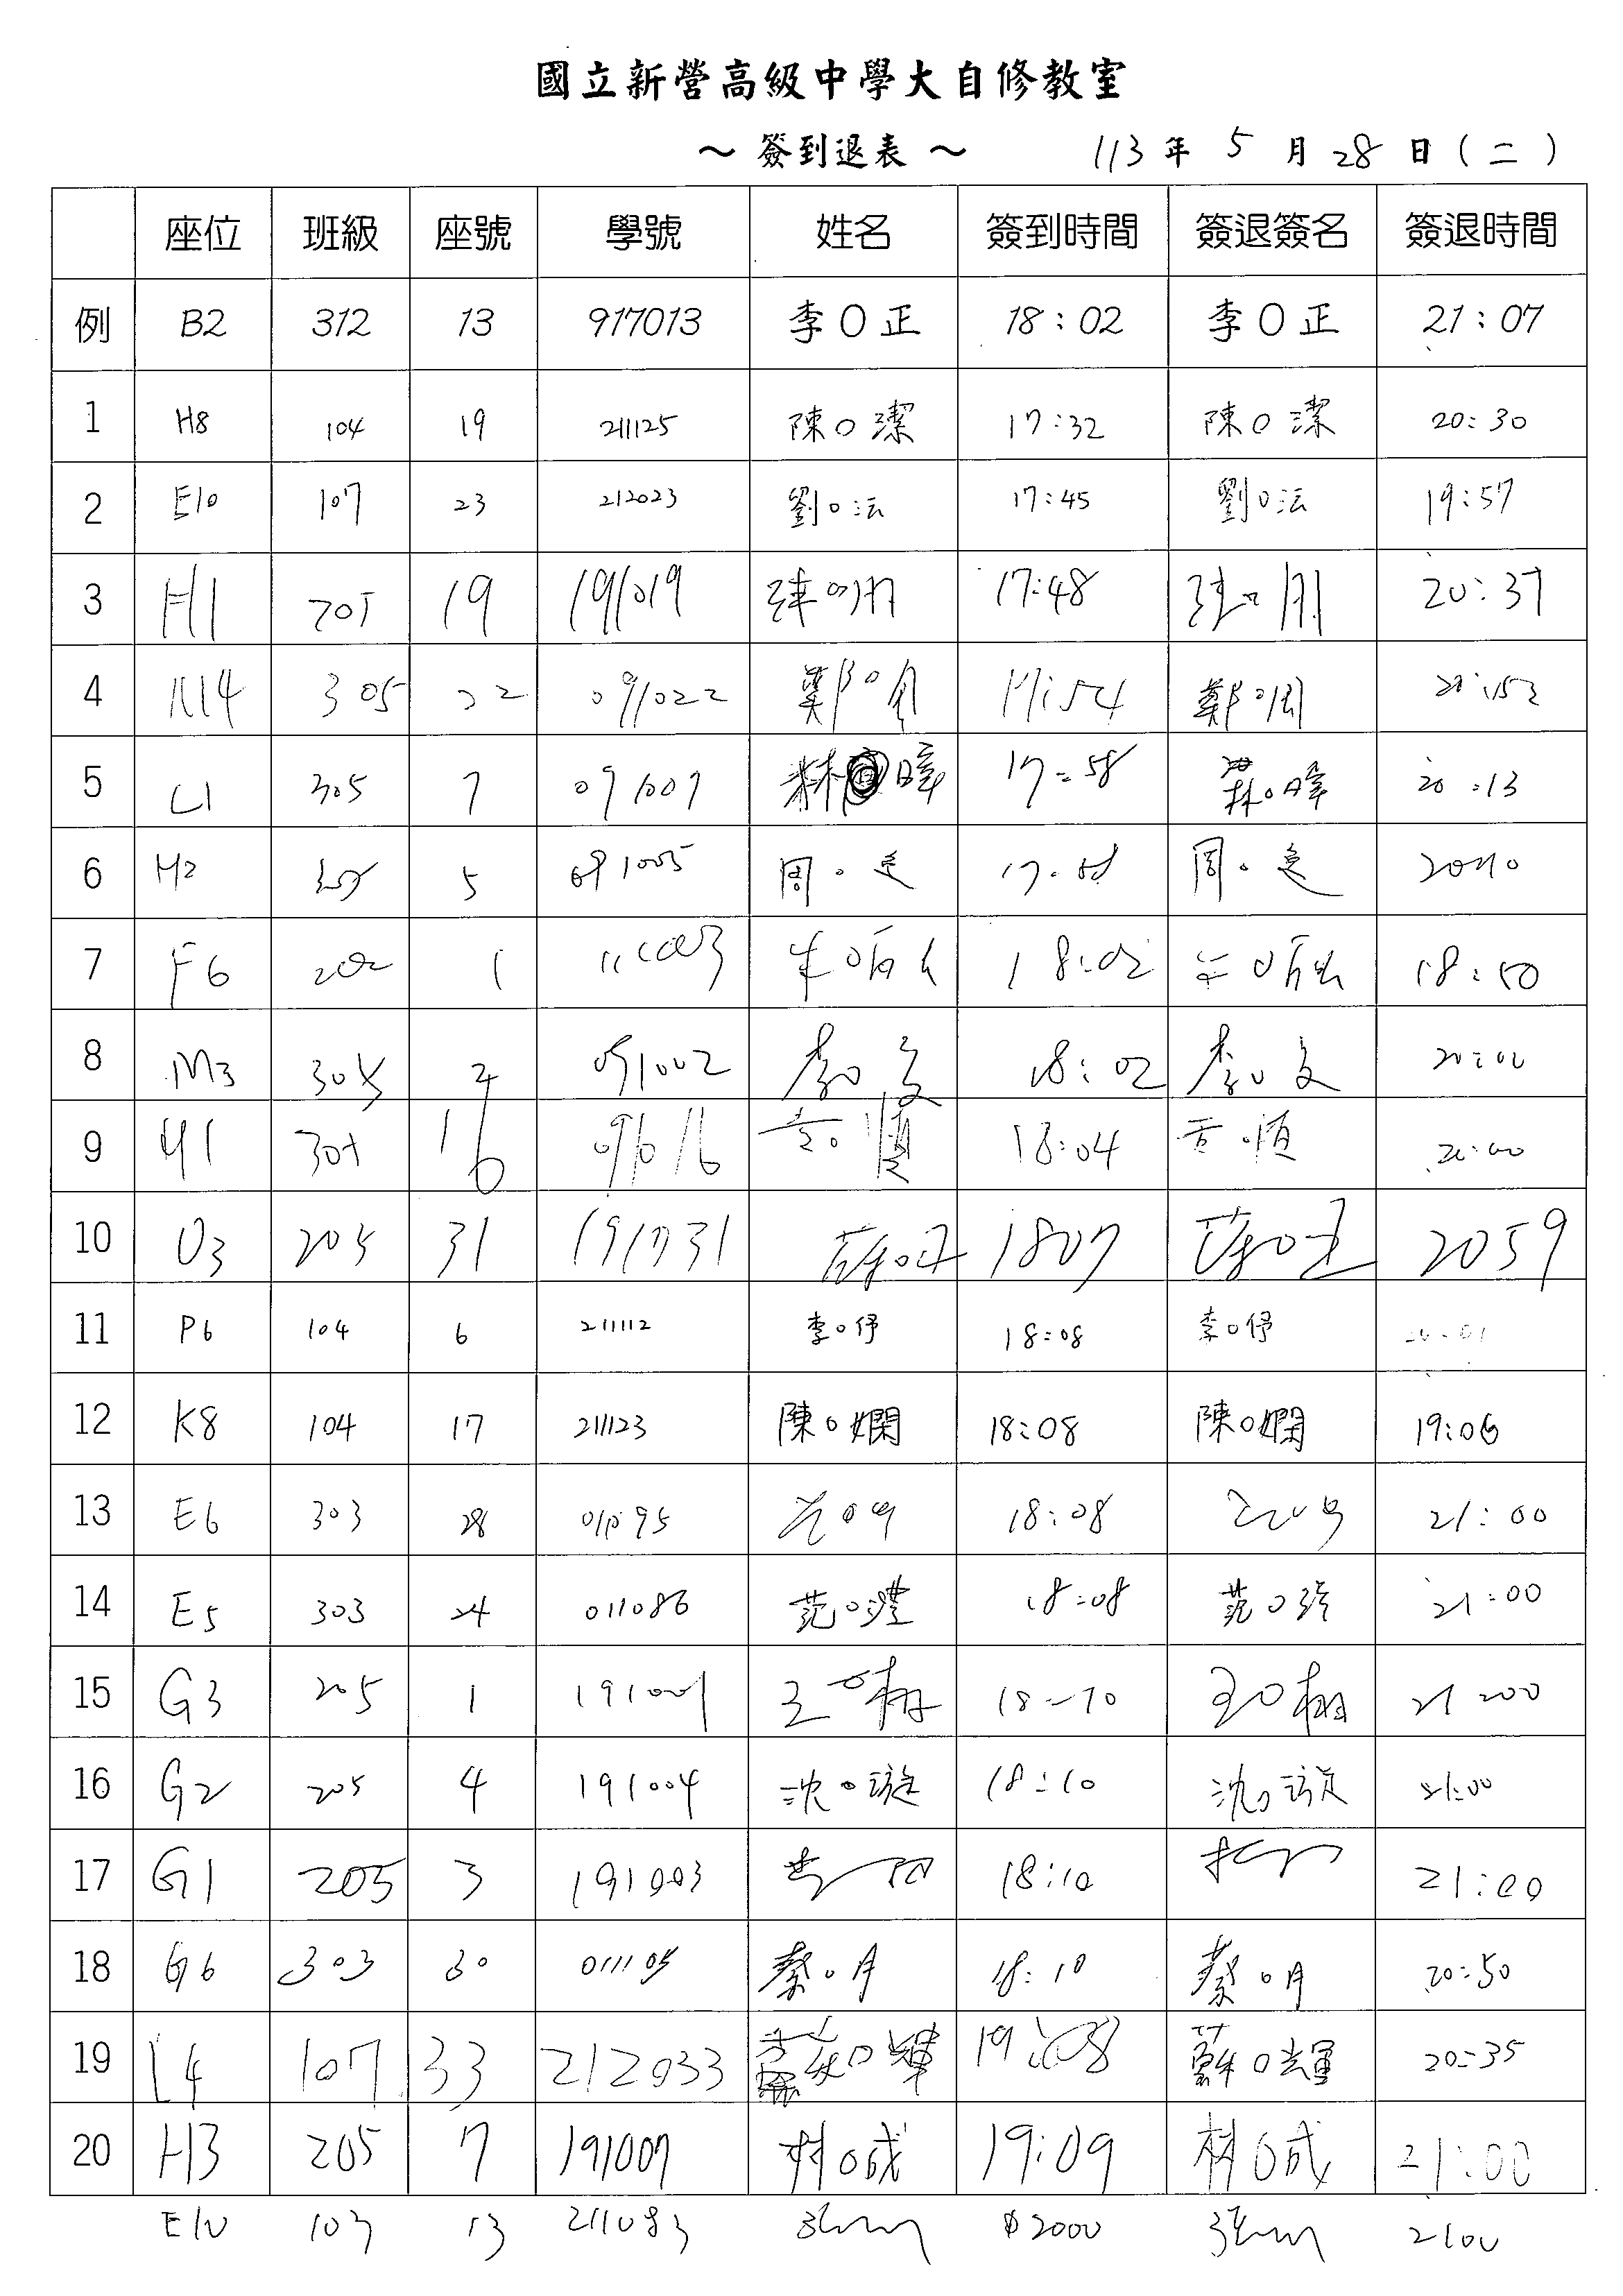 國立新營高級中學大自修教室
～ 簽到退表 ～ 113 年 5 月 28 日 ( 二 )
座位 班級 座號 學號 姓名 簽到時間 簽退簽名 簽退時間
例 B2 312 13 917013 李O正 18:02 李O正 21:07
1 H8 104 19 211125 陳O潔 17:32 陳O潔 20:30
2 E10 107 23 212023 劉O沄 17:45 劉O沄 19:57
3 H1 205 19 191019 17:48 20:37
4 305 22 091022 鄭O 17:54 鄭O 20:53
5 305 7 091007 林 暐 17:58 林O暐 20:13
6 305 5 091005 周O 周O
7 F6 202 1 18:02 18:50
8 M3 305 2 091002 李O文 18:02 李O文 20:00
9 305 16 091016 18:04 20:00
10 205 31 191031 1807 2059
11 P6 104 6 211112 李O伃 18:08 李O伃
12 K8 104 17 211123 陳O嫻 18:08 陳O嫻 19:06
13 E6 303 28 18:08 21:00
14 E5 303 24 011086 范O 18:08 范O 21:00
15 G3 205 1 191001 王O栩 18:10 王O栩 21:00
16 G2 205 4 191004 沈O璇 18:10 沈O璇 21:00
17 G1 205 3 191003 18:10 21:00
18 G6 303 30 蔡O月 18:10 蔡O月 20:50
19 L4 107 33 212033 蘇O輝 19:08 蘇O輝 20:35
20 H3 205 7 191007 林O成 19:09 林O成 21:00
E10 103 13 211083 2000 2100